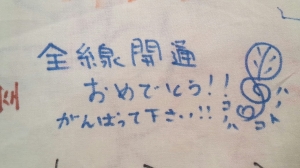 全線開通
おめでとう!!
がんばって下さい!!